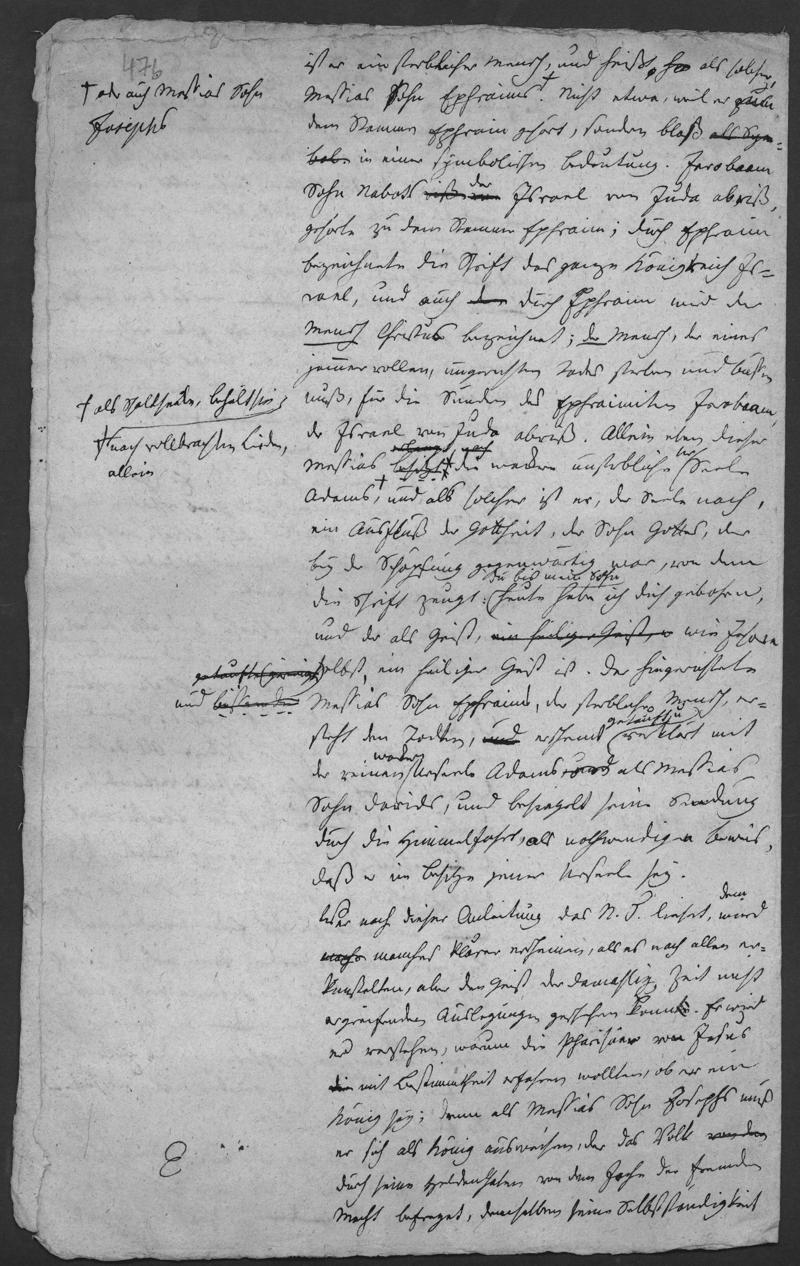 476
† oder auch Messias Sohn
Josephs
ist er ein sterblicher Mensch, und heißt, als solcher,
Messias Sohn Ephraims†. Nicht etwa, weil er zu
dem Stamme Ephraim gehört, sondern bloß als Sym=
bole in einer symbolischen Bedeutung. Jarobeam
Sohn Nabots der Israel von Juda abriß,
gehörte zu dem Stamme Ephraim; durch Ephraim
bezeichnete die Schrift das ganze Königreich Is=
rael, und auch durch Ephraim wird der
Mensch Christus bezeichnet; der Mensch, der eines
jammervollen, ungerechten Todes sterben und büßen
muß, für die Sünden des Ephraimiten Jarobeam,
† als Gottheit, behält sie
†† nach vollbrachten Leiden,
allein
der Israel von Juda abriß. Allein eben dieser
Messias besitzt die unsterbliche Seele
Adams†, und als solcher ist er, der Seele nach,
ein Ausfluß der Gottheit, der Sohn Gottes, der
bey der Schöpfung gegenwärtig war, von dem
die Schrift zeugt: (du bist mein Sohn heute habe ich dich geboren,
und der als Geist, ein heiliger Geist wie Jehova
selbst, ein heiliger Geist ist. Der hingerichtete
und büßende
Messias Sohn Ephraims, der sterbliche Mensch, er=
steht den Todten, und erscheint verklärt mit
der reinen Urseele Adams und als Messias
Sohn Davids, und besiegelt seine Sendung
durch die Himmelfahrt, als nothwendigen Beweis,
daß er im Besitze jener Urseele sey.
Wer nach dieser Anleitung das N. T. liest, dem wird
manches klarer erscheinen, als es nach allen er=
künstelten, aber den Geist der damaligen Zeit nicht
ergreifenden Auslegungen geschehen konnte. Er wird
verstehen, warum die Pharisäer von Jesus
die mit Bestimmtheit erfahren wollten, ob er ein
König sey; denn als Messias Sohn Josephs muß
er sich als König ausweisen, der das Volk von den
durch seine Heldenthaten von dem Joche der fremden
Macht befreyet, demselben seine Selbstständigkeit